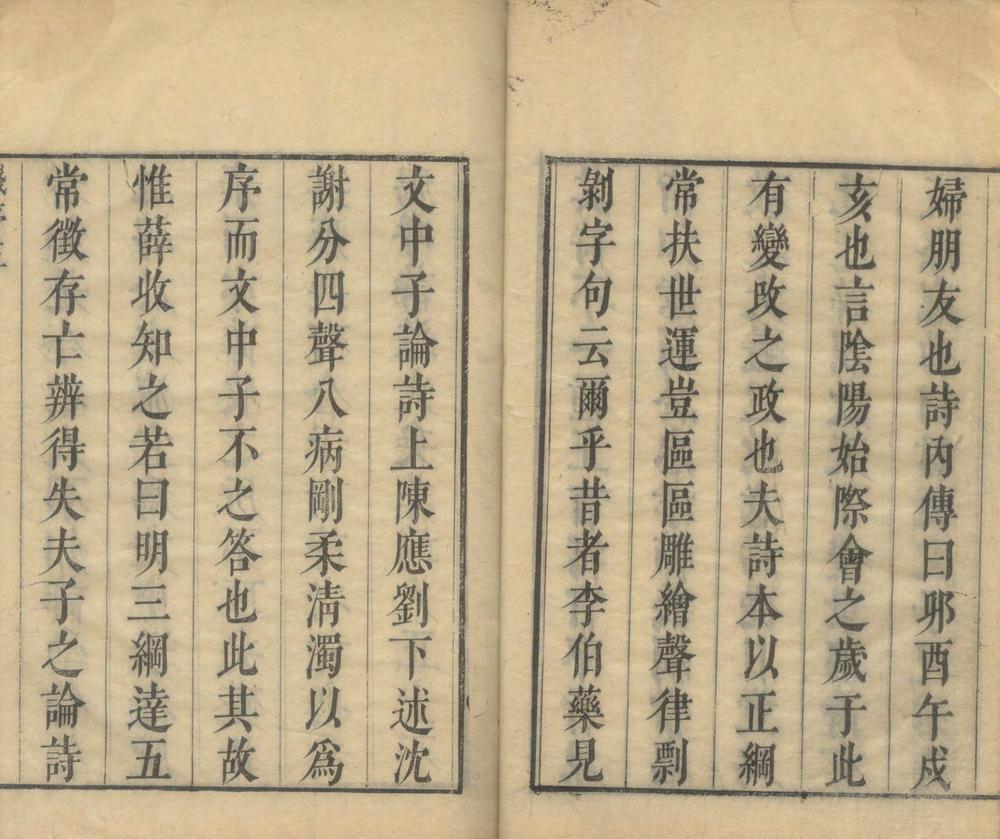 婦朋友也詩內傳曰卯酉午戌
亥也言陰陽始際會之歲于此
有變改之政也夫詩本以正綱
常扶世運豈區區雕繪聲律剽
剝字句云爾乎昔者李伯藥見
文中子論詩上陳應劉下述沈
謝分四聲八病剛柔淸濁以爲
序而文中子不之答也此其故
惟薛收知之若曰明三綱達五
常徵存亡辨得失夫子之論詩